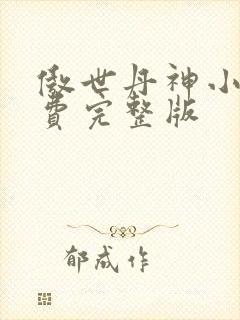 傲世丹神小
费完整版
郁成作